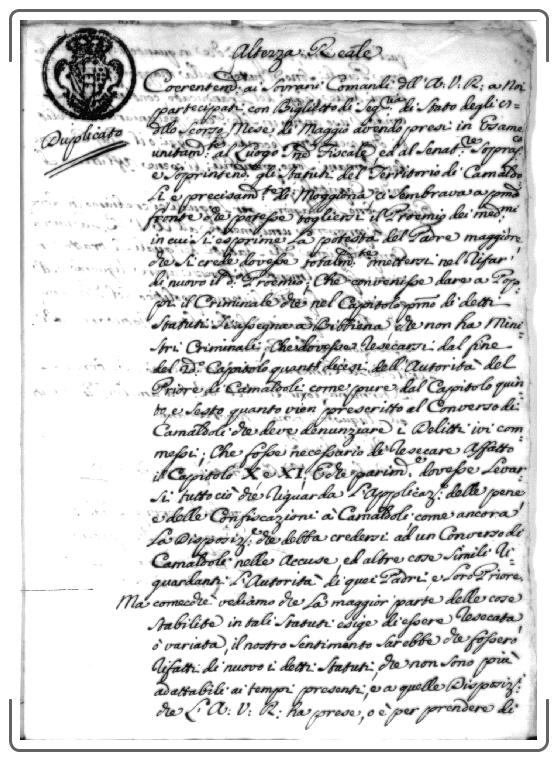 Altezza Reale
Duplicato
Coerentem.te ai Sovrani Comandi dell'A: V: R: a Noi
partecipati con Biglietto di Seg.ria di Stato degli
dello scorso Mese di Maggio avendo presi in Esame
unitam.te al Luogo Ten.te Fiscale ed al Senat.re Soprass.
e Soprintend. gli Statuti del Territorio di Camaldo
li e precisam.te di Moggiona, ci Sembrava a p.ma
fronte che potesse togliersi il Proemio dei med.mi
in cui si esprime la potestà del Padre maggiore
che si crede dovesse totalm.te omettersi nel rifar
di nuovo il d.o Proemio; Che convenisse dare a Pop
pi il Criminale che nel Capitolo p.mo di detti
Statuti si assegna a Bibbiena che non ha Mini
stri Criminali; Che dovesse resecarsi dal fine
del 2.do Capitolo quanto dicesi dell'Autorità del
Priore di Camaldoli, come pure dal Capitolo quin
to, e sesto quanto vien prescritto al Converso di
Camaldoli che deve denunziare i Delitti ivi com
messi; Che fosse necessario di resecare affatto
il Capitolo X e XI; E che parim.te dovesse levar
si tutto ciò che riguarda l'Applicaz.e delle pene
e delle Confiscazioni a Camaldoli come ancora
la Disposiz.e che debba credersi ad un Converso di
Camaldoli nelle Accuse ed altre cose simili ri
guardanti l'Autorità di quei Padri e loro Priore,
Ma comecchè vediamo che la maggior parte delle cose
stabilite in tali Statuti esige di essere resecata
ò variata, il nostro sentimento sarebbe che fossero
rifatti di nuovo i detti Statuti, che non sono più
adattabili ai tempi presenti, e a quelle Disposiz.i
che l'A: V: R: ha prese, o è per prendere di